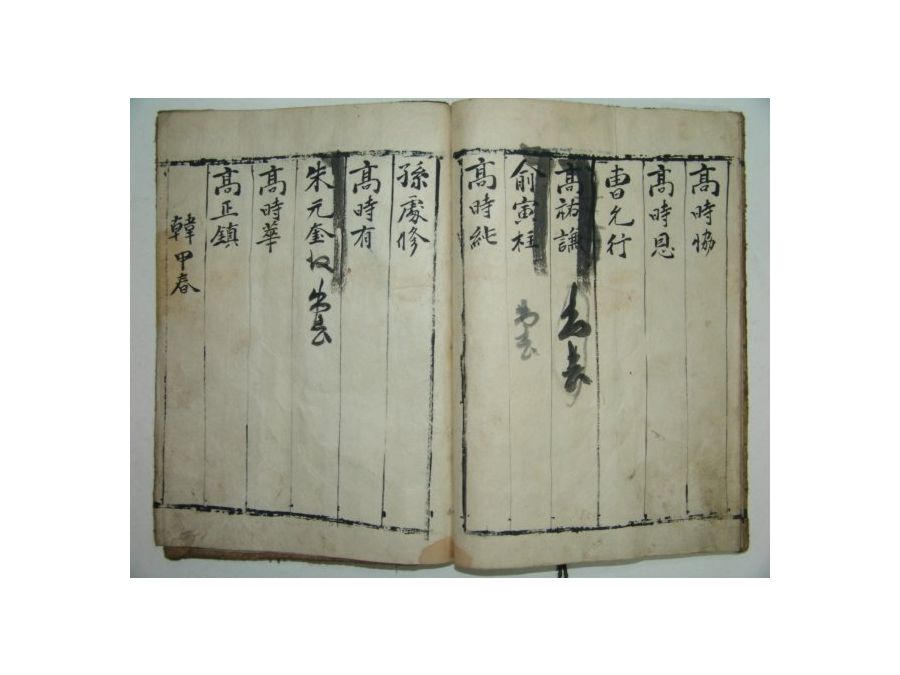 高時協
高時恩
曺允行
高謙
俞寅柱
高時
孫處修
高時有
朱元奎
高時華
高正鎮
韓甲春